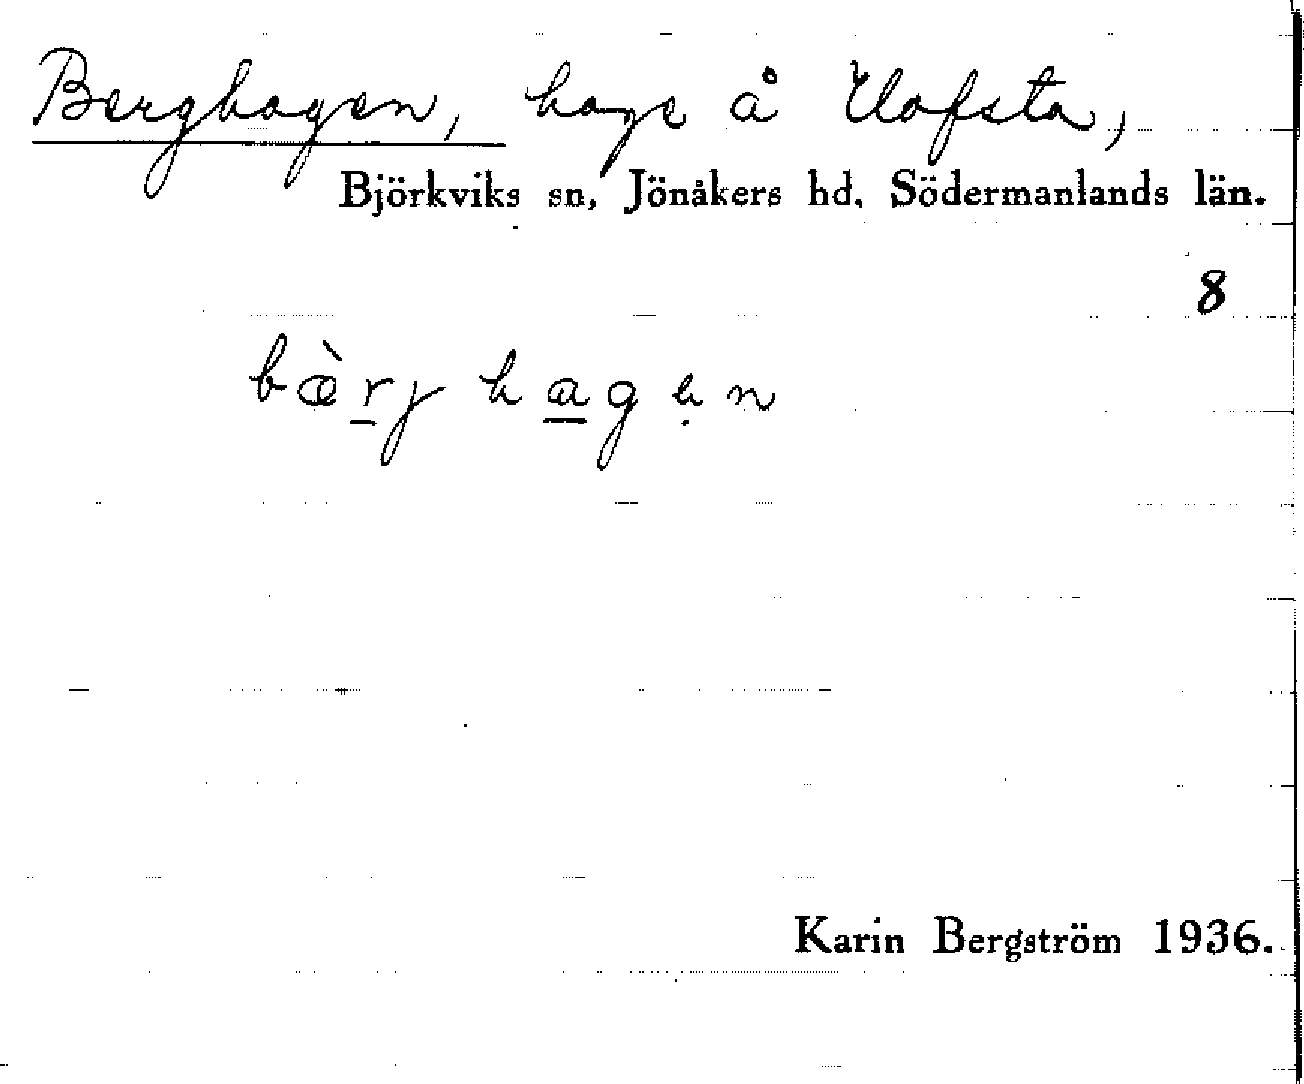 Berghagen, hage å Ulofsta,
Björkviks sn, Jönåkers hd, Södermanlands län.
8
bæ̀r̲j ha̲gẹn
Karin Bergström 1936.